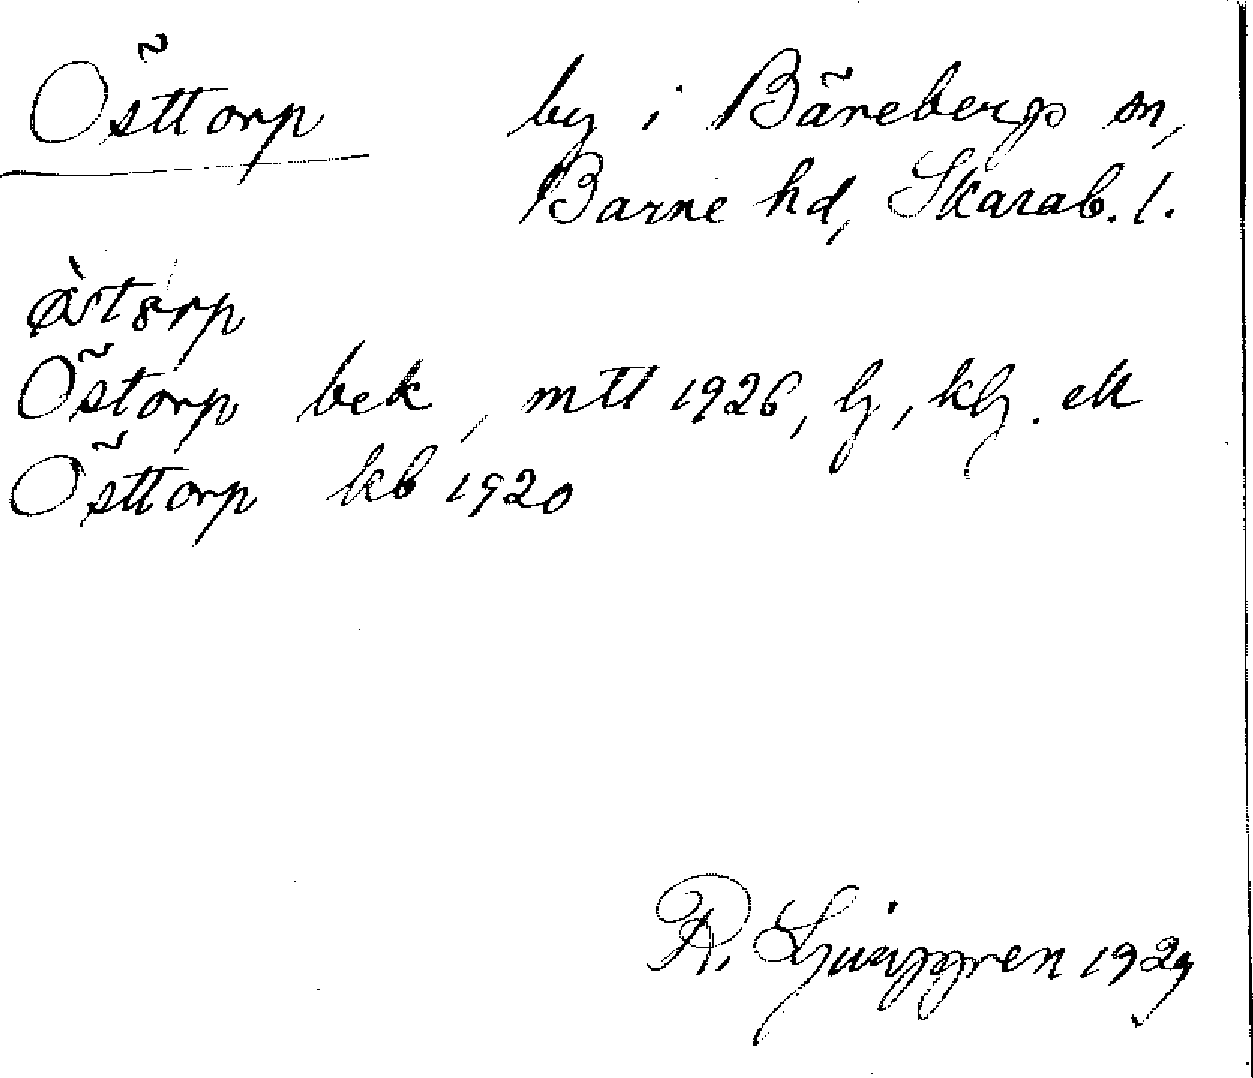 Östtorp by i Bärebergs sn,
Barne hd, Skarab. l.
Östorp bek, mtt 1926, lj, klj. ek
Östtorp kb 1920
R. Ljunggren 1929